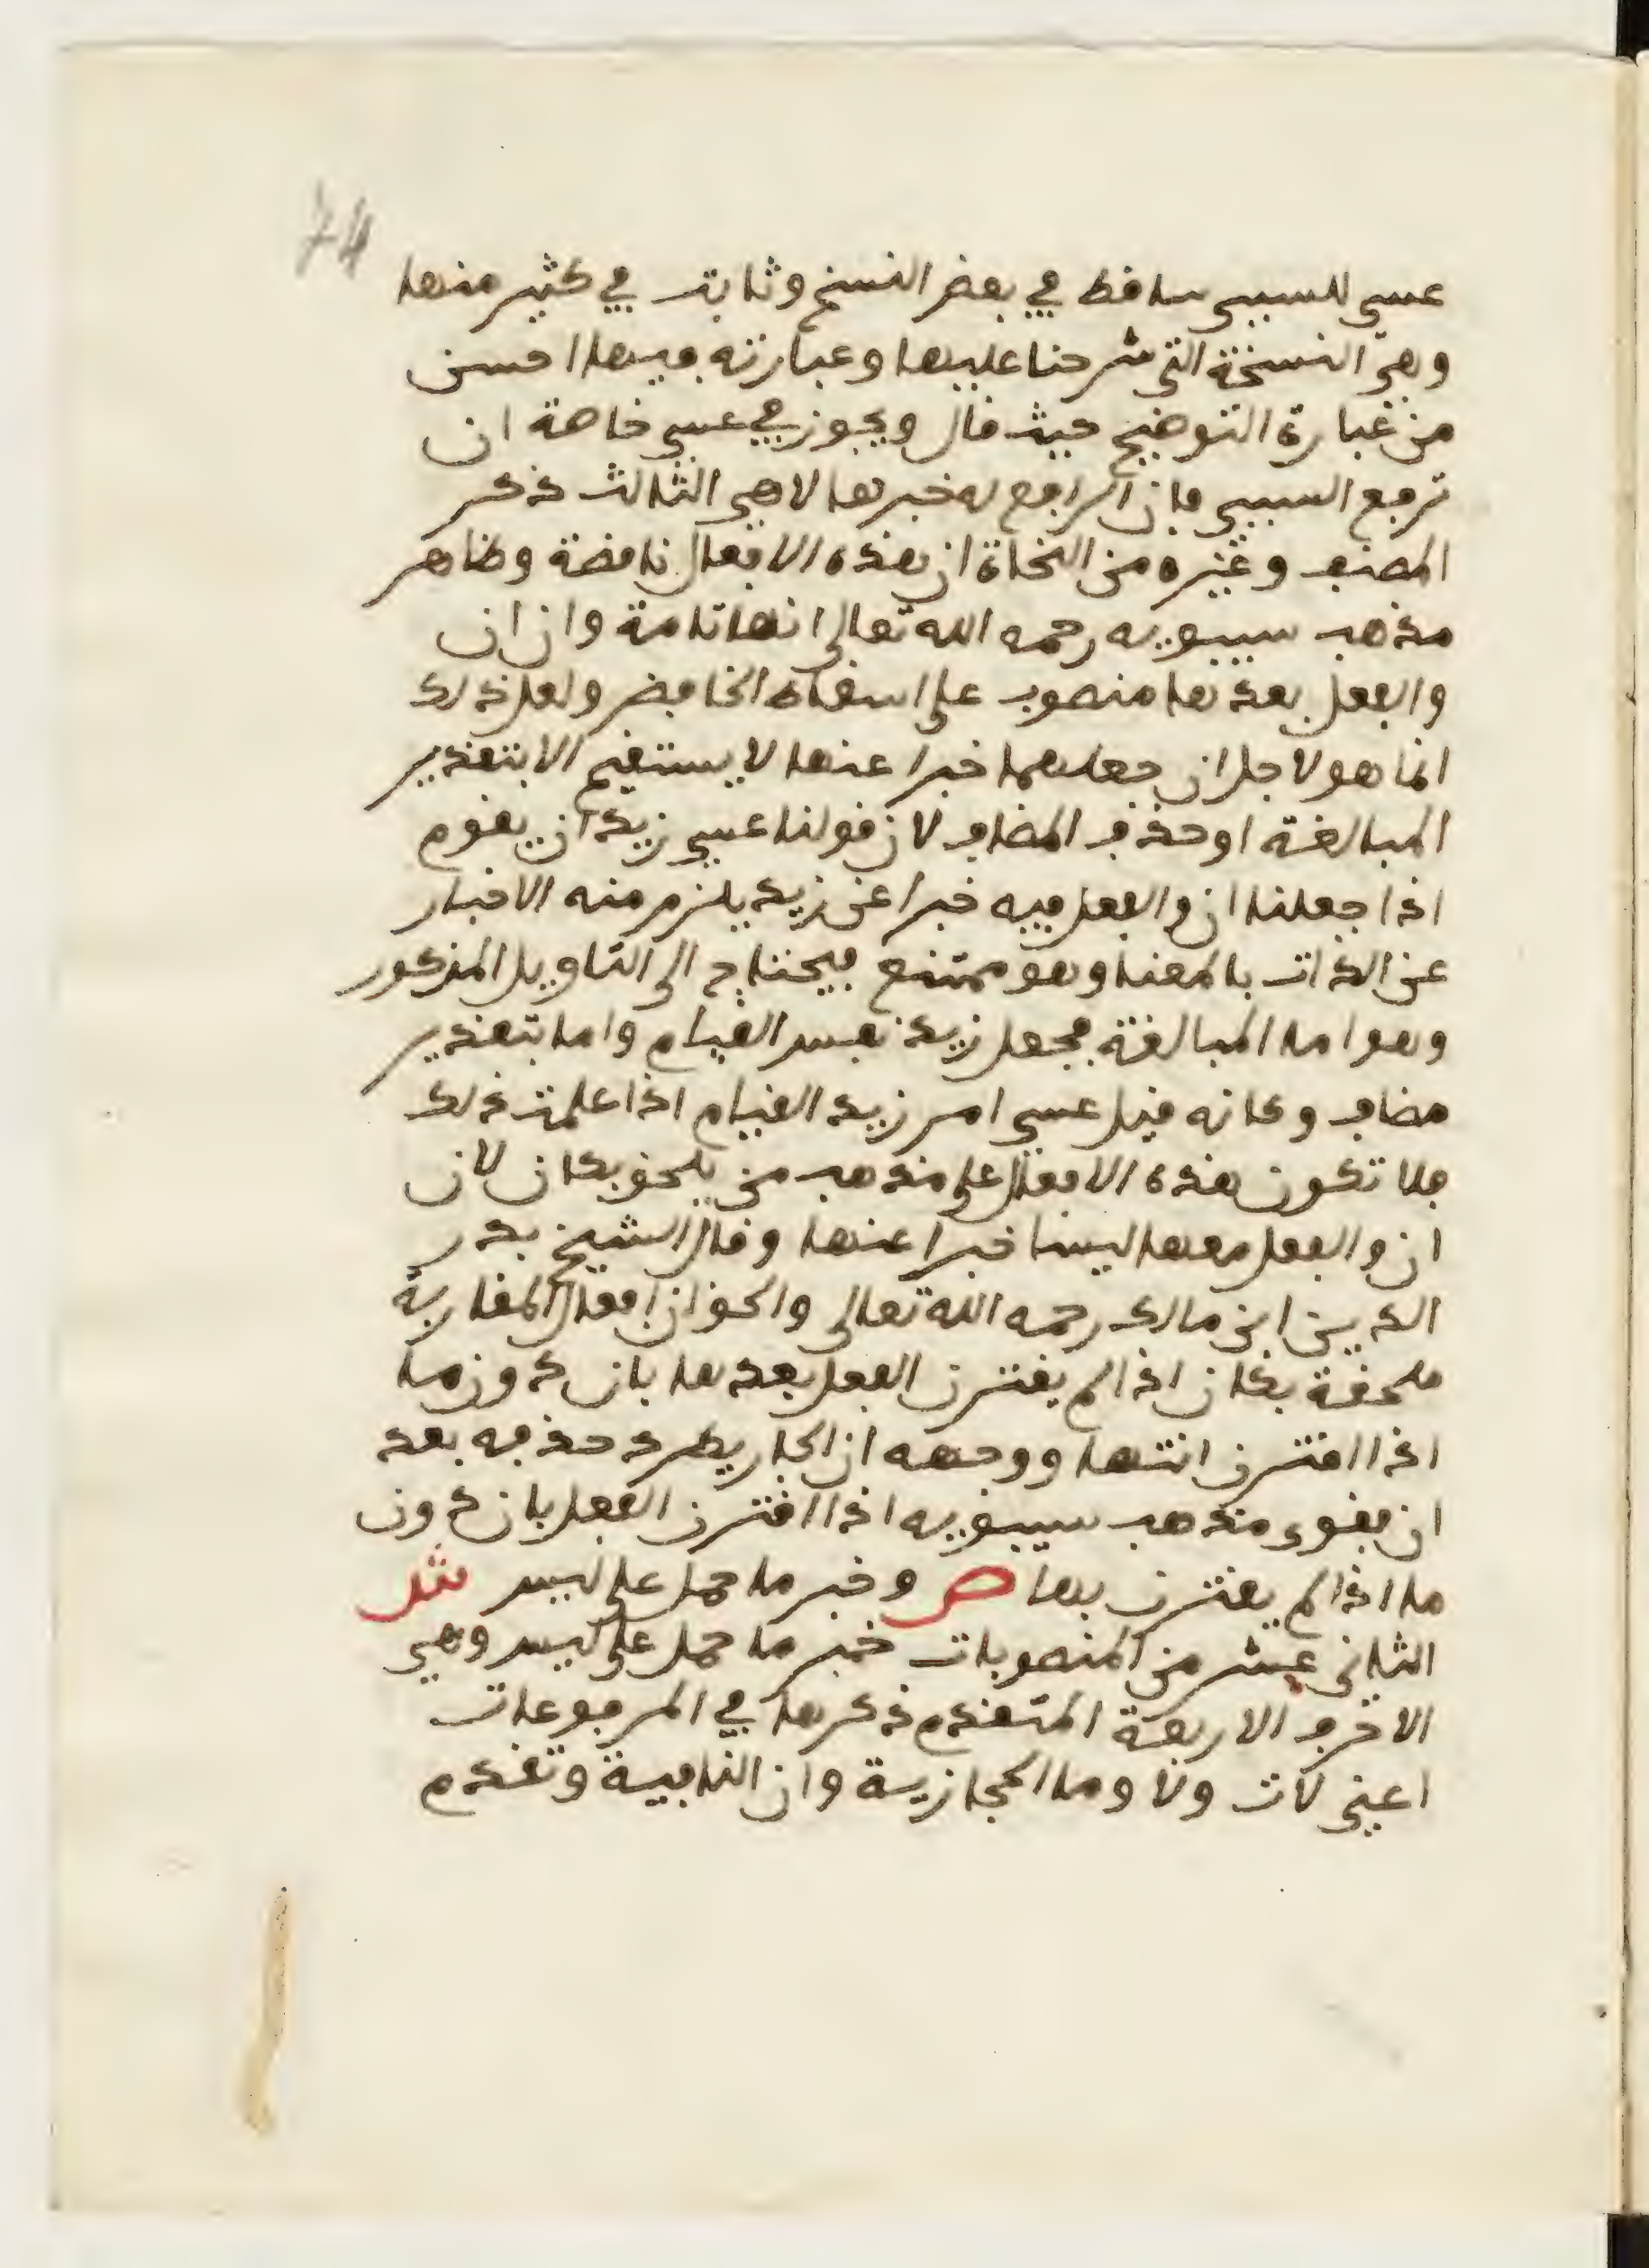 74
عسى للسببى ساقط في بعض النسخ وثابت في كثير منها
وهي النسخة التى شرحنا عليها وعبارته فيها احسن
من عبارة التوضيح حيث قال ويجوز في عسى خاصة ان
ترفع السببى فان الرافع له خبرها لاهى الثالث ذكر
المصنف وغيره من النحاة ان هذه الافعال ناقصة وظاهر
مذهب سيبويه رحمه الله تعالى انها تامة وان ان
والفعل بعدها منصوب على اسقاط الخافض ولعل ذلك
انما هو لاجل ان جعلهما خبرا عنها لا يستقيم الا بتقدير
المبالغة او حذف المضاف لان قولنا عسى زيد ان يقوم
اذا جعلنا ان والفعل فيه خبرا عن زيد يلزم منه الاخبار
عن الذات بالمعنا وهو ممتنع فيحتاج الى التاويل المذكور
وهو اما المبالغة بجعل زيد نفس القيام واما بتقدير
مضاف وكانه قيل عسى امر زيد القيام اذا علمت ذلك
فلا تكون هذه الافعال على مذهب من يلحق بكان لان
ان والفعل معها ليسا خبرا عنها وقال الشيخ بدر
الدين ابن مالك رحمه الله تعالى والحق ان افعال المقاربة
ملحقة بكان اذا لم يقترن الفعل بعدها بان دون ما
اذا اقترن انتها ووجهه ان الجار يطرد حذفه بعد
ان فقوي مذهب سيبويه اذا اقترن الفعل بان دون
ما اذا لم يقترن بها ص وخبر ما حمل على ليس ش
الثانى عشر من المنصوبات خبر ما حمل على ليس وهي
الاحرف الاربعة المتقدم ذكرها في المرفوعات
اعنى لات ولا وما الحجازية وان النافية وتقدم